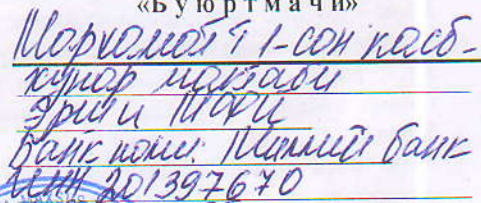 «Буюртмачи»
Мархамат 1-сон касб-
хунар мактаби
Эрши МФЙ
Банк номи: Миллий банк
ИНН 201397670